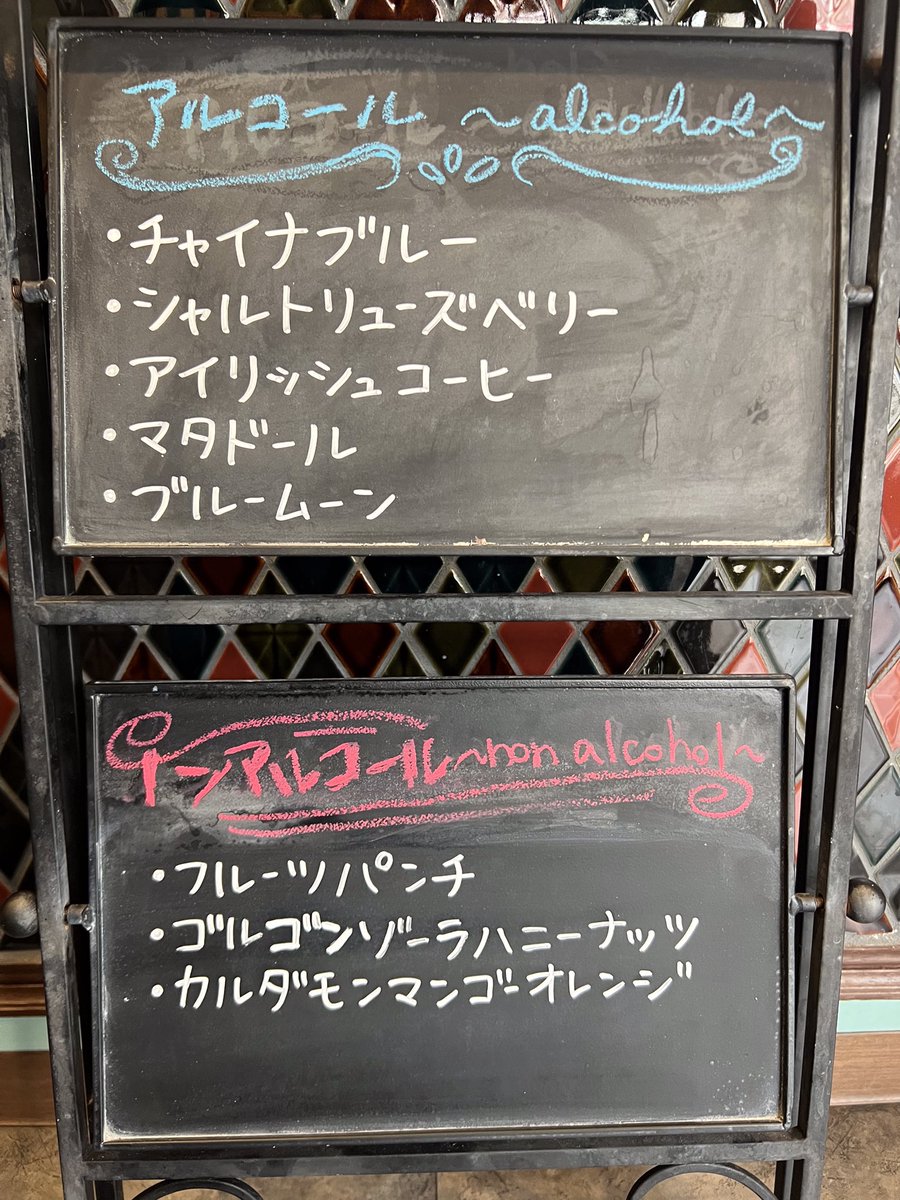 アルコール ～alcohol～
・チャイナブルー
・シャルトリューズベリー
・アイリッシュコーヒー
・マタドール
・ブルームーン
ノンアルコール～non alcohol～
・フルーツパンチ
・ゴルゴンゾーラハニーナッツ
・カルダモンマンゴーオレンジ